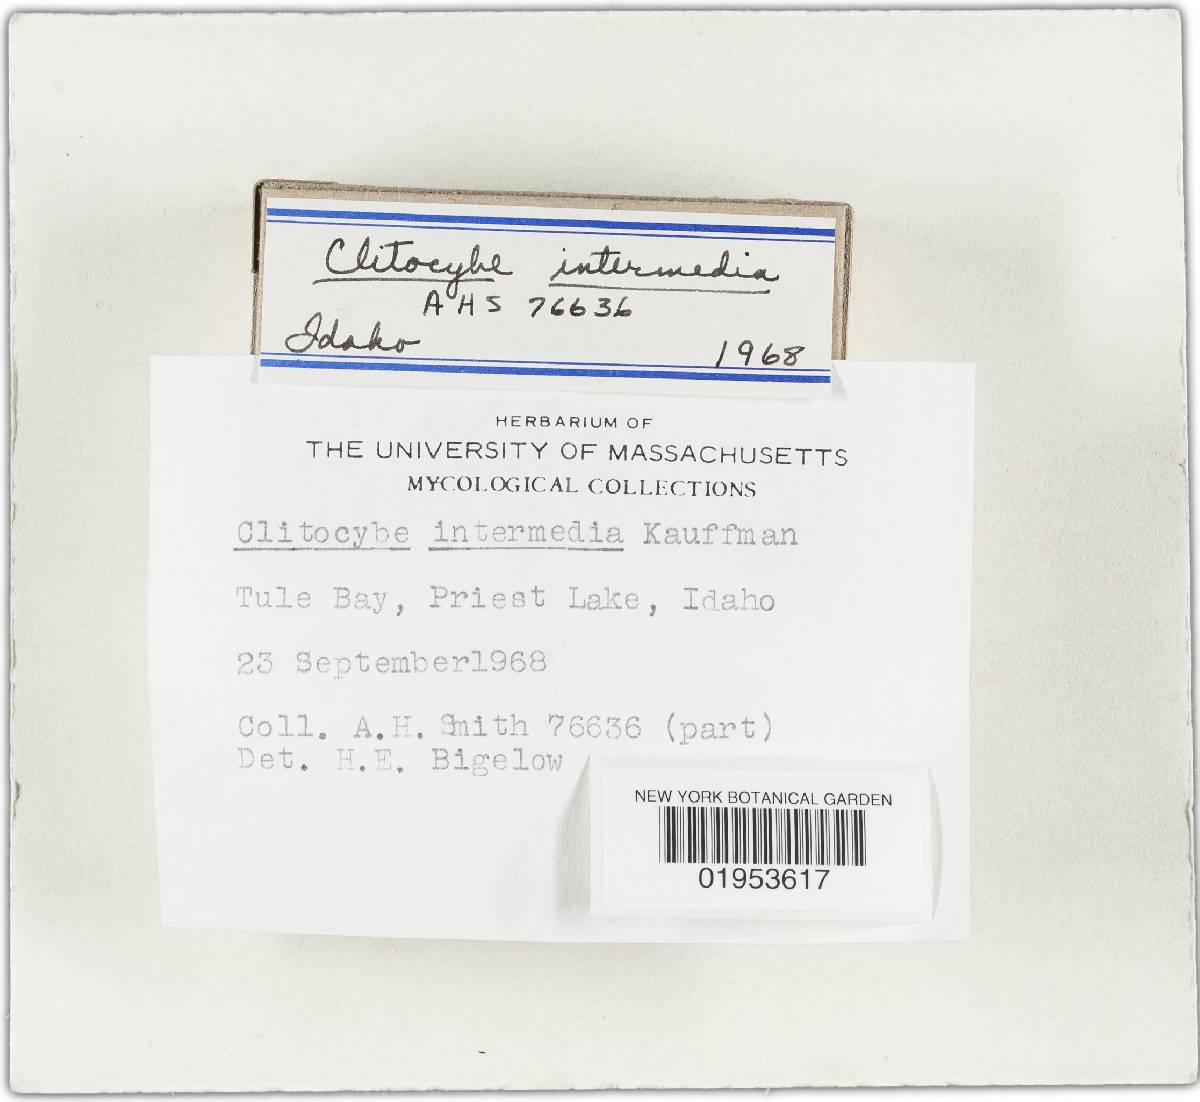 Clitocybe intermedia
AHS 76636
Idaho 1968
HERBARIUM OF
THE UNIVERSITY OF MASSACHUSETTS
MYCOLOGICAL COLLECTIONS
Clitocybe intermedia Kauffman
Tule Bay, Priest Lake, Idaho
23 September1968
Coll. A.H. Smith 76636 (part)
Det. H.E. Bigelow
NEW YORK BOTANICAL GARDEN
01953617